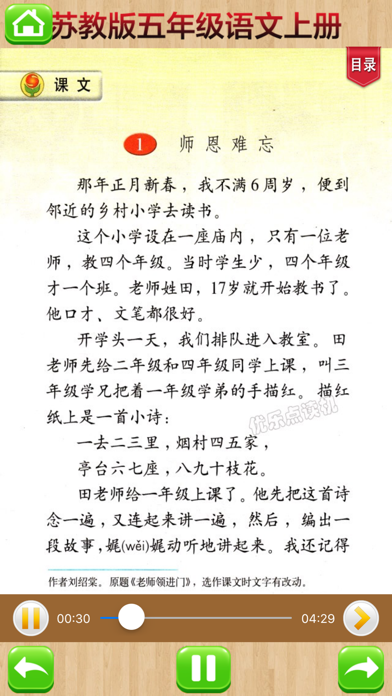 苏教版五年级语文上册
目录
课文
1 师恩难忘
那年正月新春，我不满6周岁，便到
邻近的乡村小学去读书。
这个小学设在一座庙内，只有一位老
师，教四个年级。当时学生少，四个年级
才一个班。老师姓田，17岁就开始教书了。
他口才、文笔都很好。
开学头一天，我们排队进入教室。田
老师先给二年级和四年级同学上课，叫三
年级学兄把着一年级学弟的手描红。描红
纸上是一首小诗：
一去二三里，烟村四五家，
亭台六七座，八九十枝花。
田老师给一年级上课了。他先把这首诗
念一遍，又连起来讲一遍，然后，编出一
段故事，娓(wěi)娓动听地讲起来。我还记得
优乐点读机
作者刘绍棠。原题《老师领进门》，选作课文时文字有改动。
00:30
04:29